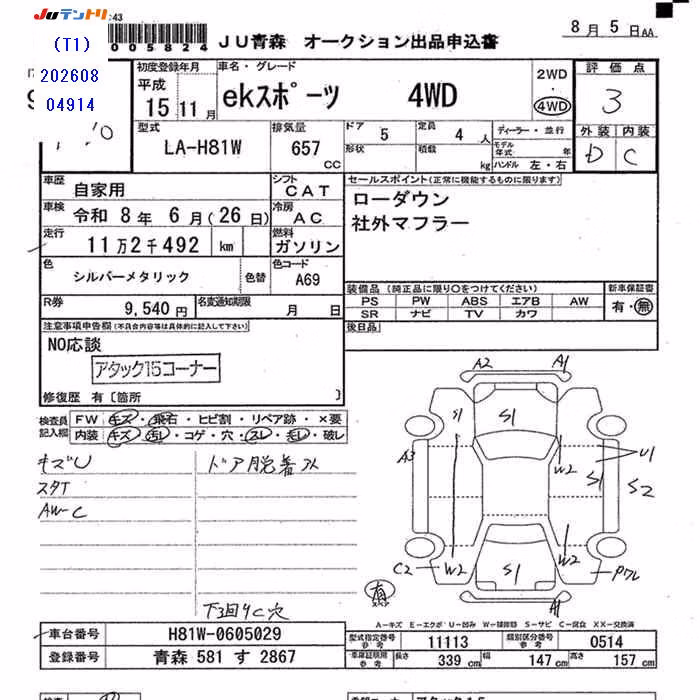 JUテントリ :43
(T1)
202608
04914
005824 JU青森 オークション出品申込書
8月5日AA
初度登録年月
平成
15 11月
車名・グレード
ekスポーツ 4WD
2WD
・
4WD
評価点
3
外装 内装
D C
型式
LA-H81W
排気量
657
CC
ドア 5
定員 4人
形状
積載 kg
ディーラー・並行
モデル年式 年
ハンドル 左・右
車歴
自家用
シフト
CAT
車検
令和 8年 6月(26日)
冷房
AC
走行
11万2千492 km
燃料
ガソリン
色
シルバーメタリック
色替
色コード
A69
R券
9,540円
名変通知期限
月 日
セールスポイント(正常に機能するものに限ります)
ローダウン
社外マフラー
装備品(純正品に限り○をつけてください)
PS PW ABS エアB AW
SR ナビ TV カワ
新車保証書
有・無
後日品
注意事項申告欄(不具合内容等は具体的に記入して下さい)
NO応談
アタック15コーナー
修復歴 有〔箇所 〕
検査員記入欄
FW キズ・飛石・ヒビ割・リペア跡・×要
内装 キズ・汚レ・コゲ・穴・スレ・モレ・破レ
キズU
スタT
AW-C
ドア脱着外
下回りC穴
A2 A1
S1 S1
A3
W2
U1
S1 S2
W2
C2 W2 S1
A1
有
A-キズ E-エクボ U-凹み W-補修跡 S-サビ C-腐食 XX-交換済
車台番号
H81W-0605029
登録番号
青森 581 す 2867
型式指定番号
参考
11113
類別区分番号
参考
0514
車庫証明用
参考
長さ
339 cm
幅
147 cm
高さ
157 cm
アタック15